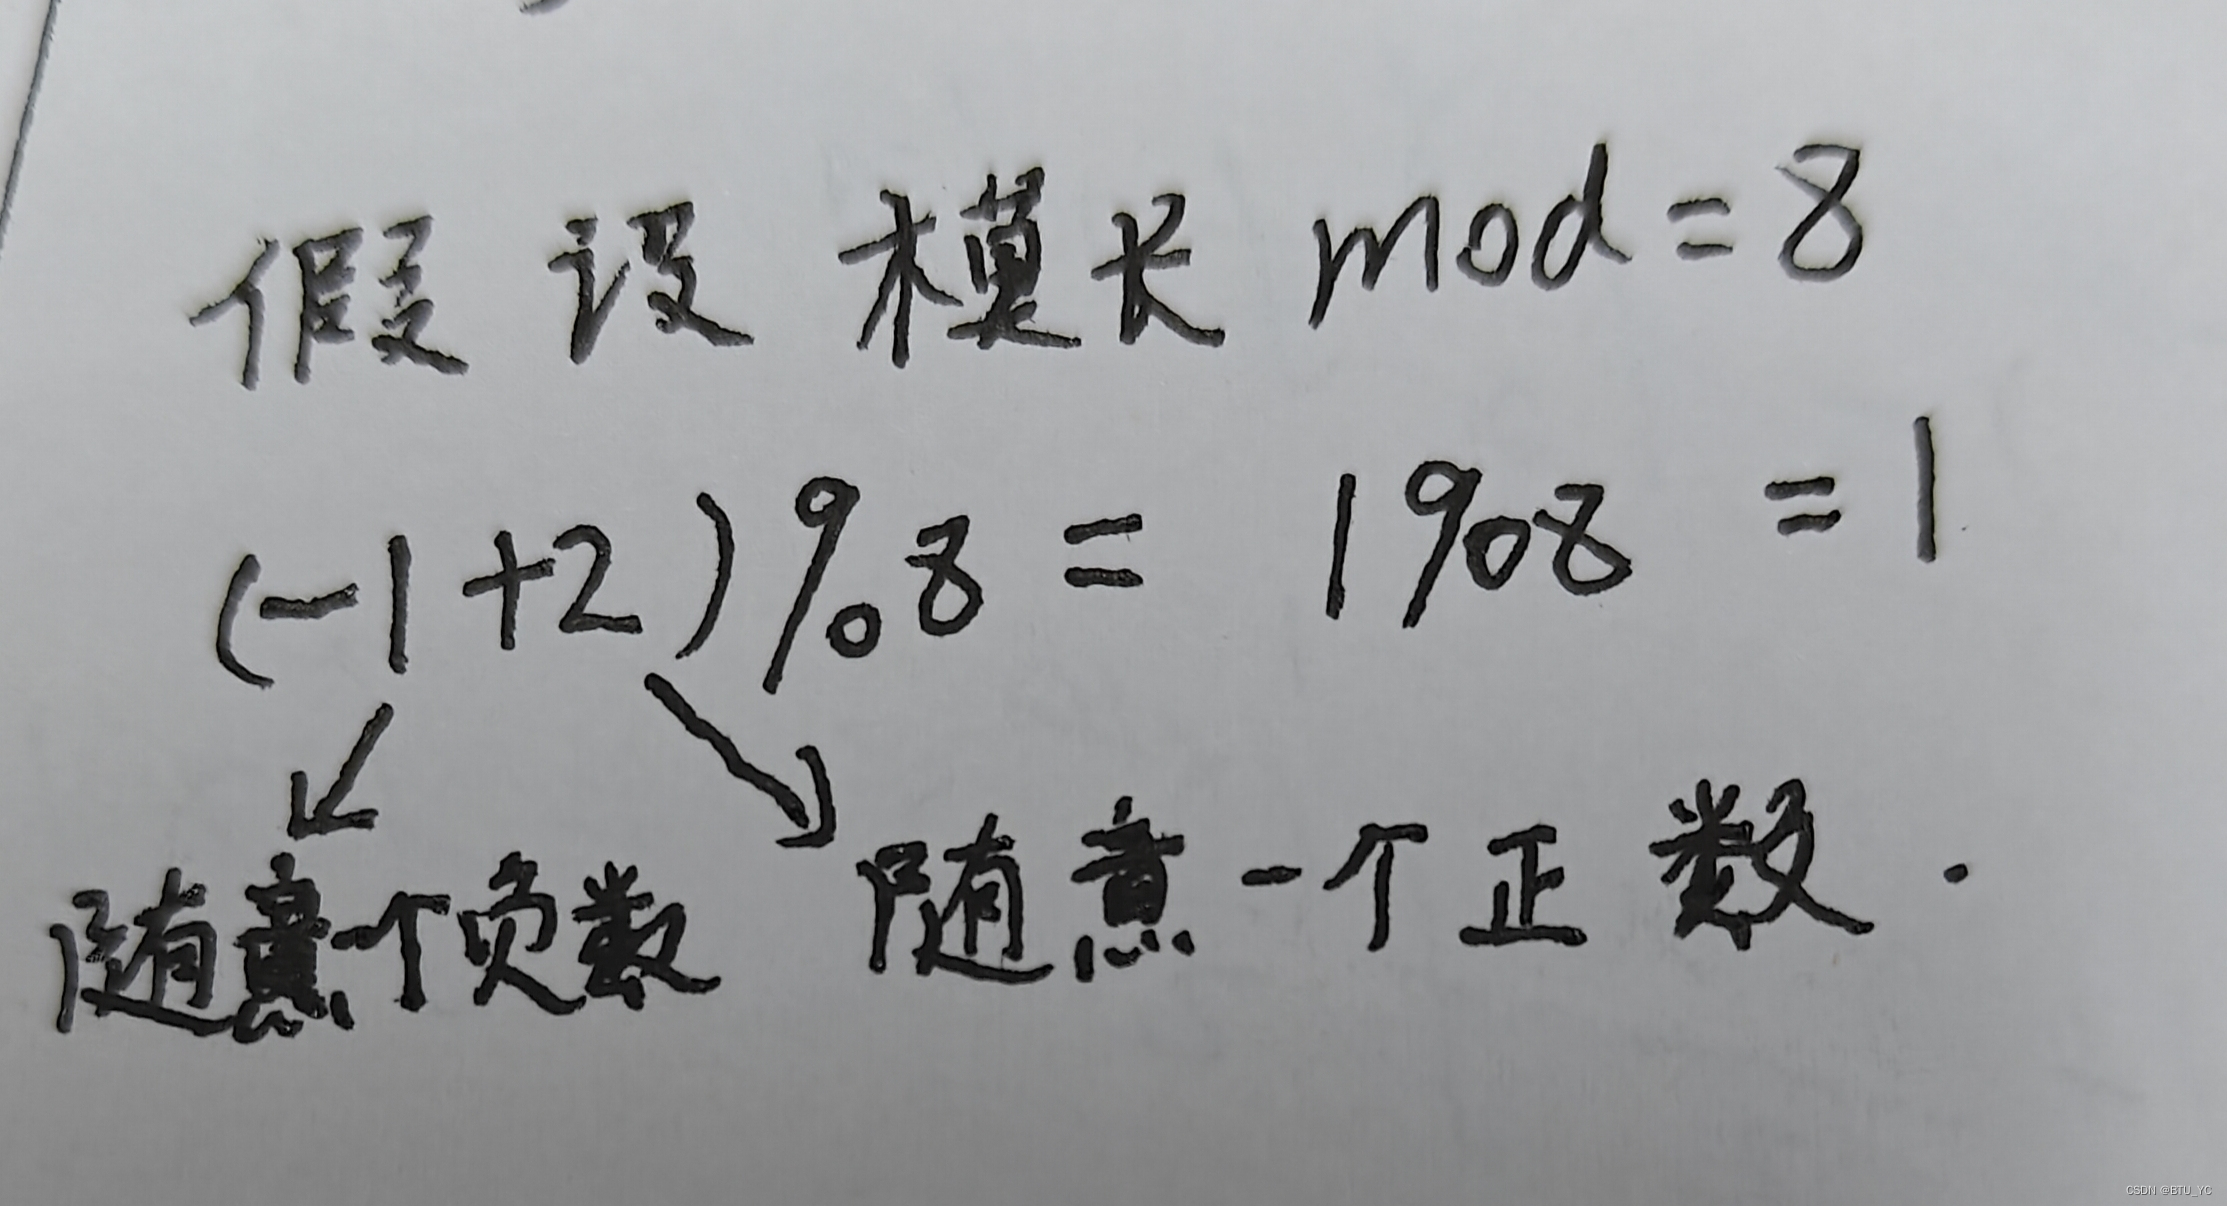 假设 模长 mod=8
(-1+2)%8= 1%8 =1
随意一个负数 随意一个正数.
CSDN @BTU_YC